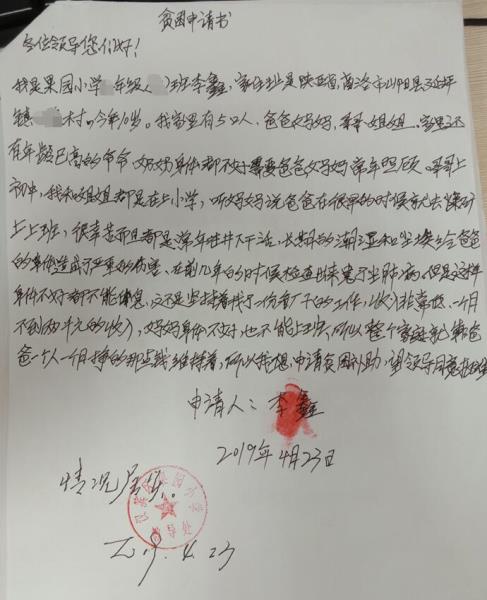 贫困申请书
各位领导您们好！
我是果园小学 年级 班李鑫，家住址是陕西省，商洛市山阳县延坪
镇 村。今年10岁。我家里有5口人，爸爸妈妈，哥哥姐姐…家里还
有年龄已高的爷爷 奶奶身体都不好需要爸爸妈妈常年照顾。哥哥上
初中，我和姐姐都是在上小学，听妈妈说爸爸在很早的时候就去煤矿
上上班，很辛苦而且都是常年在井下干活，长期的潮湿和尘埃给爸爸
的身体造成了严重的伤害，在前几年的时候检查出来患了尘肺病，但是这样
身体不好都不能休息，还是坚持着找了一份看厂子的工作，收入非常低，一个月
不到两千元的收入，妈妈身体不好，也不能上班，所以整个家庭就靠爸
爸一个人一个月挣的那点钱维持着，所以我想，申请贫困补助，望领导同意
申请人：李鑫
2019年4月23日
情况属实。
果园小学
教导处
2019.4.23